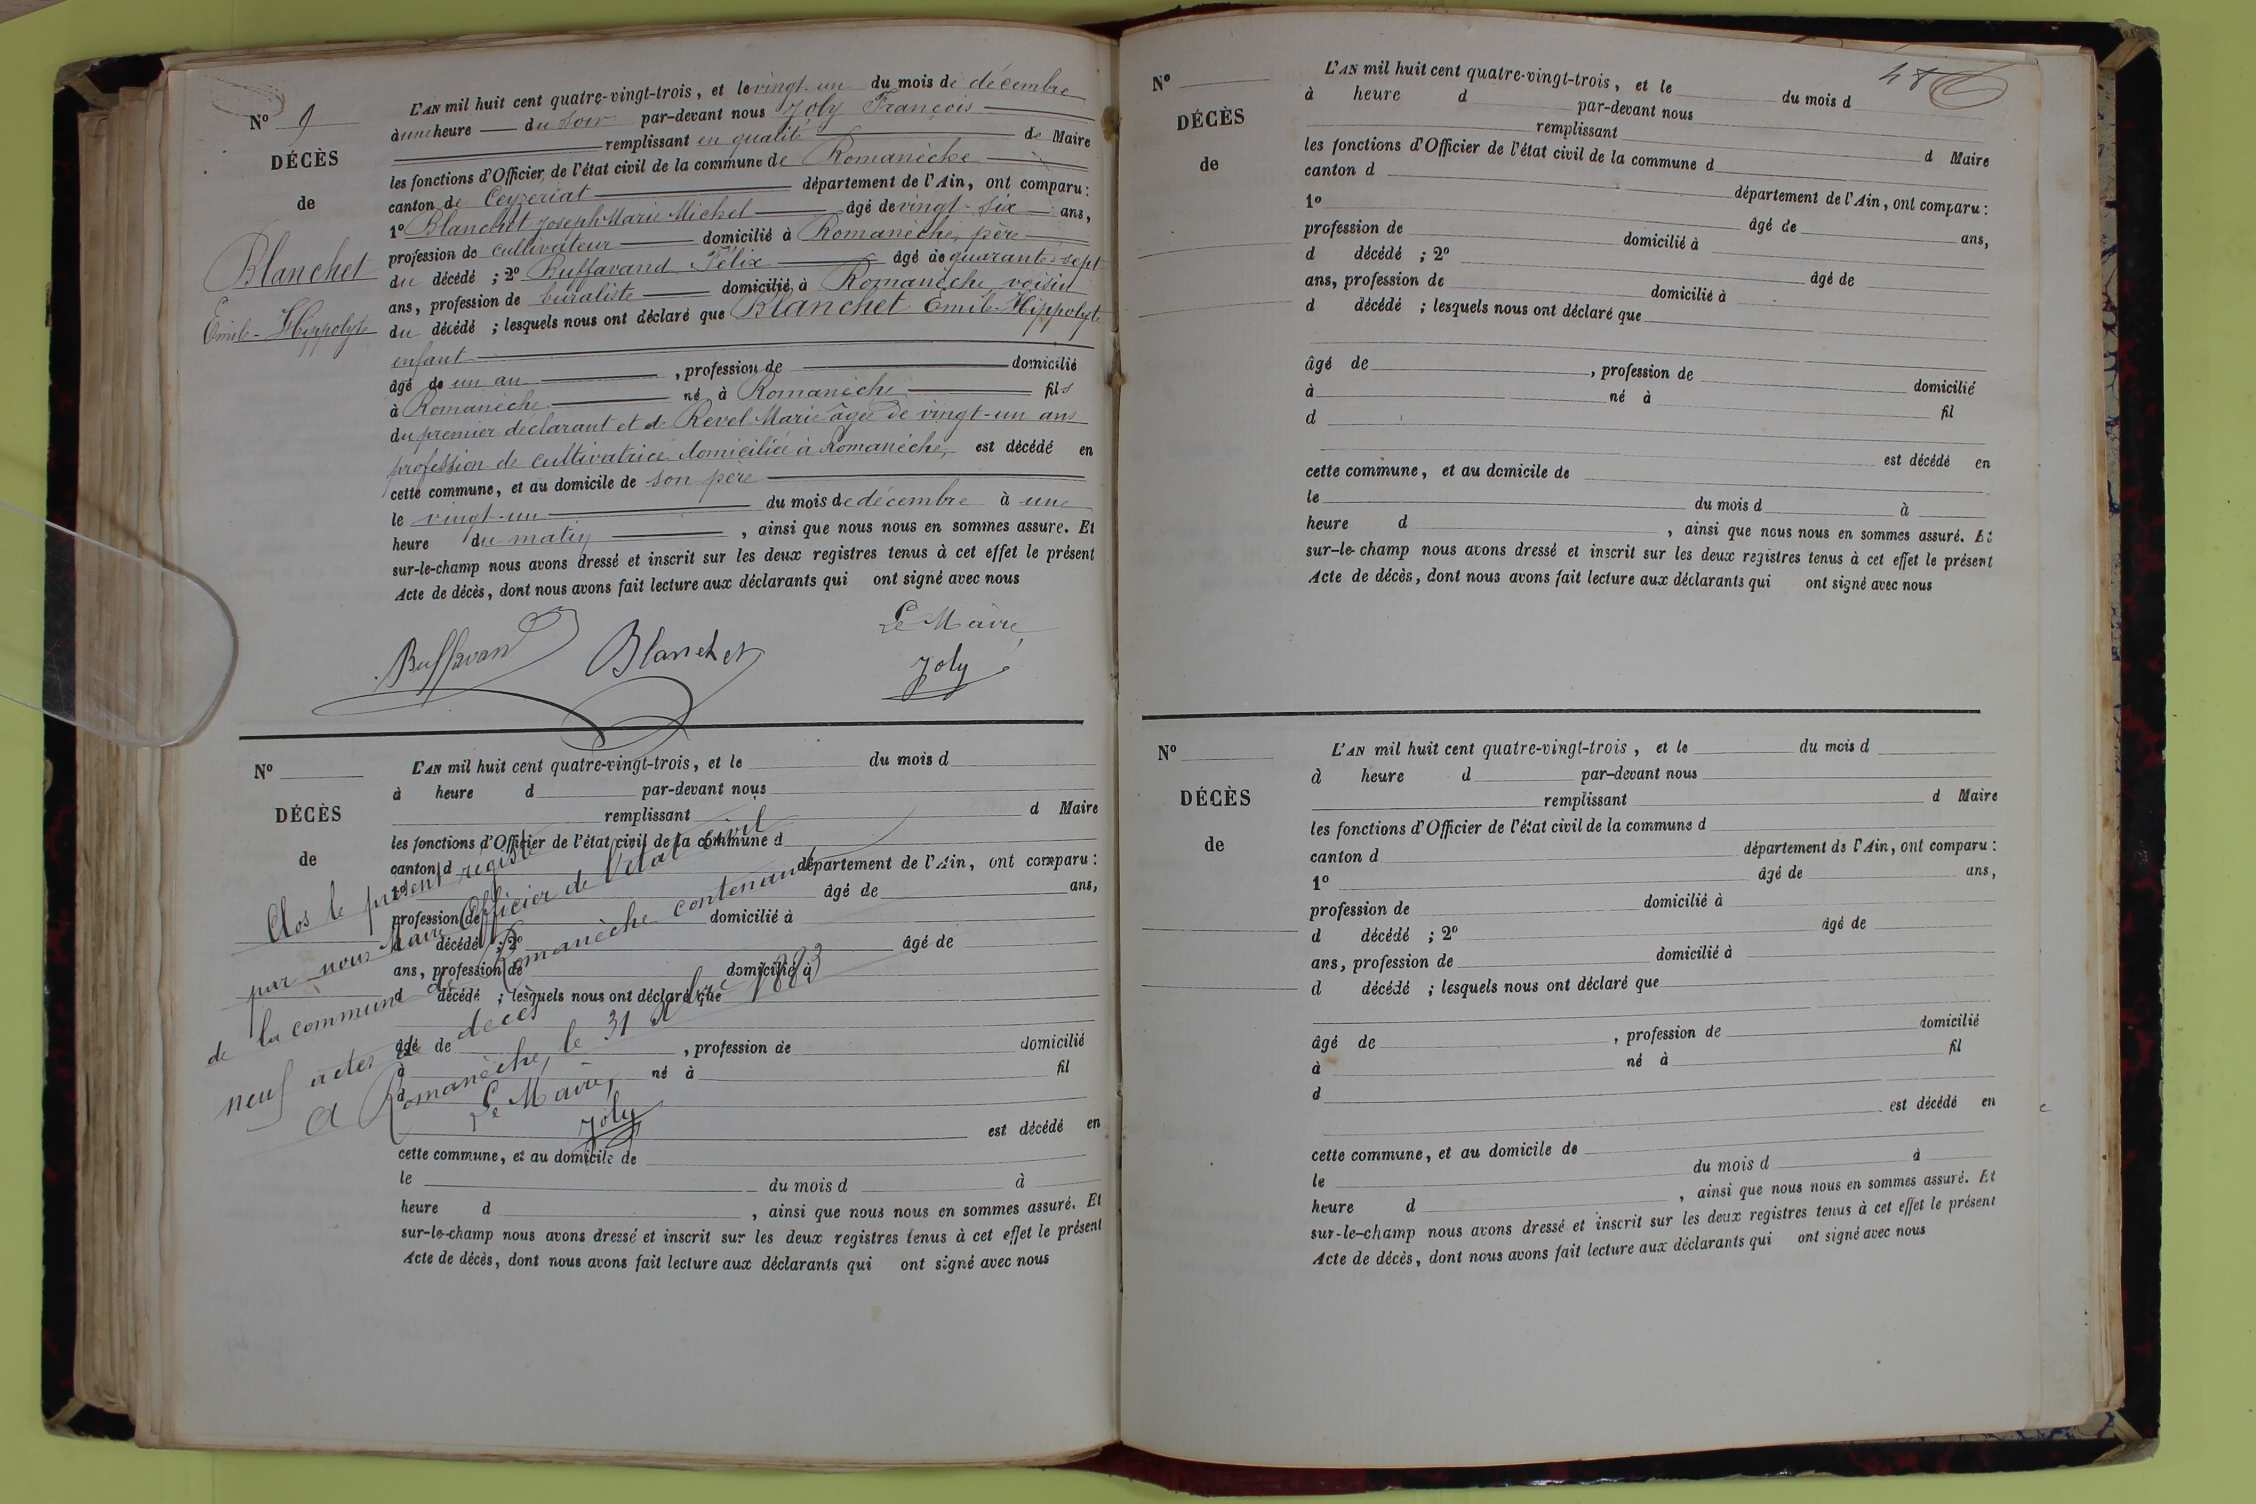 N° 9
DÉCÈS
de
Blanchet
Emile-Hippolyte
L'AN mil huit cent quatre-vingt-trois, et le vingt-un du mois de décembre
à une heure du soir par-devant nous Joly François
remplissant en qualité de Maire
les fonctions d'Officier de l'état civil de la commune de Romanèche
canton de Ceyzeriat département de l'Ain, ont comparu :
1° Blanchet Joseph Marie Michel âgé de vingt-six ans,
profession de cultivateur domicilié à Romanèche, père
du décédé ; 2° Buffavand Félix âgé de quarante-sept
ans, profession de buraliste domicilié à Romanèche voisin
du décédé ; lesquels nous ont déclaré que Blanchet Emile-Hippolyte
enfant
âgé de un an , profession de domicilié
à Romanèche né à Romanèche fils
du premier déclarant et de Revel Marie âgée de vingt-un ans
profession de cultivatrice domiciliée à Romanèche, est décédé en
cette commune, et au domicile de son père
le vingt-un du mois de décembre à une
heure du matin , ainsi que nous nous en sommes assuré. Et
sur-le-champ nous avons dressé et inscrit sur les deux registres tenus à cet effet le présent
Acte de décès, dont nous avons fait lecture aux déclarants qui ont signé avec nous
Le Maire,
Buffavand Blanchet Joly
N°
DÉCÈS
de
L'AN mil huit cent quatre-vingt-trois, et le du mois d
à heure d par-devant nous
remplissant d Maire
les fonctions d'Officier de l'état civil de la commune d
canton d département de l'Ain, ont comparu :
1° âgé de ans,
profession de domicilié à
d décédé ; 2° âgé de
ans, profession de domicilié à
d décédé ; lesquels nous ont déclaré que
âgé de , profession de domicilié
à né à fil
d
est décédé en
cette commune, et au domicile de
le du mois d à
heure d , ainsi que nous nous en sommes assuré. Et
sur-le-champ nous avons dressé et inscrit sur les deux registres tenus à cet effet le présent
Acte de décès, dont nous avons fait lecture aux déclarants qui ont signé avec nous
Clos le présent registre
par nous Maire Officier de l'état civil
de la commune de Romanèche contenant
neuf actes de décès
A Romanèche, le 31 1883
Le Maire,
Joly
48
N°
DÉCÈS
de
L'AN mil huit cent quatre-vingt-trois, et le du mois d
à heure d par-devant nous
remplissant d Maire
les fonctions d'Officier de l'état civil de la commune d
canton d département de l'Ain, ont comparu :
1° âgé de ans,
profession de domicilié à
d décédé ; 2° âgé de
ans, profession de domicilié à
d décédé ; lesquels nous ont déclaré que
âgé de , profession de domicilié
à né à fil
d
est décédé en
cette commune, et au domicile de
le du mois d à
heure d , ainsi que nous nous en sommes assuré. Et
sur-le-champ nous avons dressé et inscrit sur les deux registres tenus à cet effet le présent
Acte de décès, dont nous avons fait lecture aux déclarants qui ont signé avec nous
N°
DÉCÈS
de
L'AN mil huit cent quatre-vingt-trois, et le du mois d
à heure d par-devant nous
remplissant d Maire
les fonctions d'Officier de l'état civil de la commune d
canton d département de l'Ain, ont comparu :
1° âgé de ans,
profession de domicilié à
d décédé ; 2° âgé de
ans, profession de domicilié à
d décédé ; lesquels nous ont déclaré que
âgé de , profession de domicilié
à né à fil
d
est décédé en
cette commune, et au domicile de
le du mois d à
heure d , ainsi que nous nous en sommes assuré. Et
sur-le-champ nous avons dressé et inscrit sur les deux registres tenus à cet effet le présent
Acte de décès, dont nous avons fait lecture aux déclarants qui ont signé avec nous